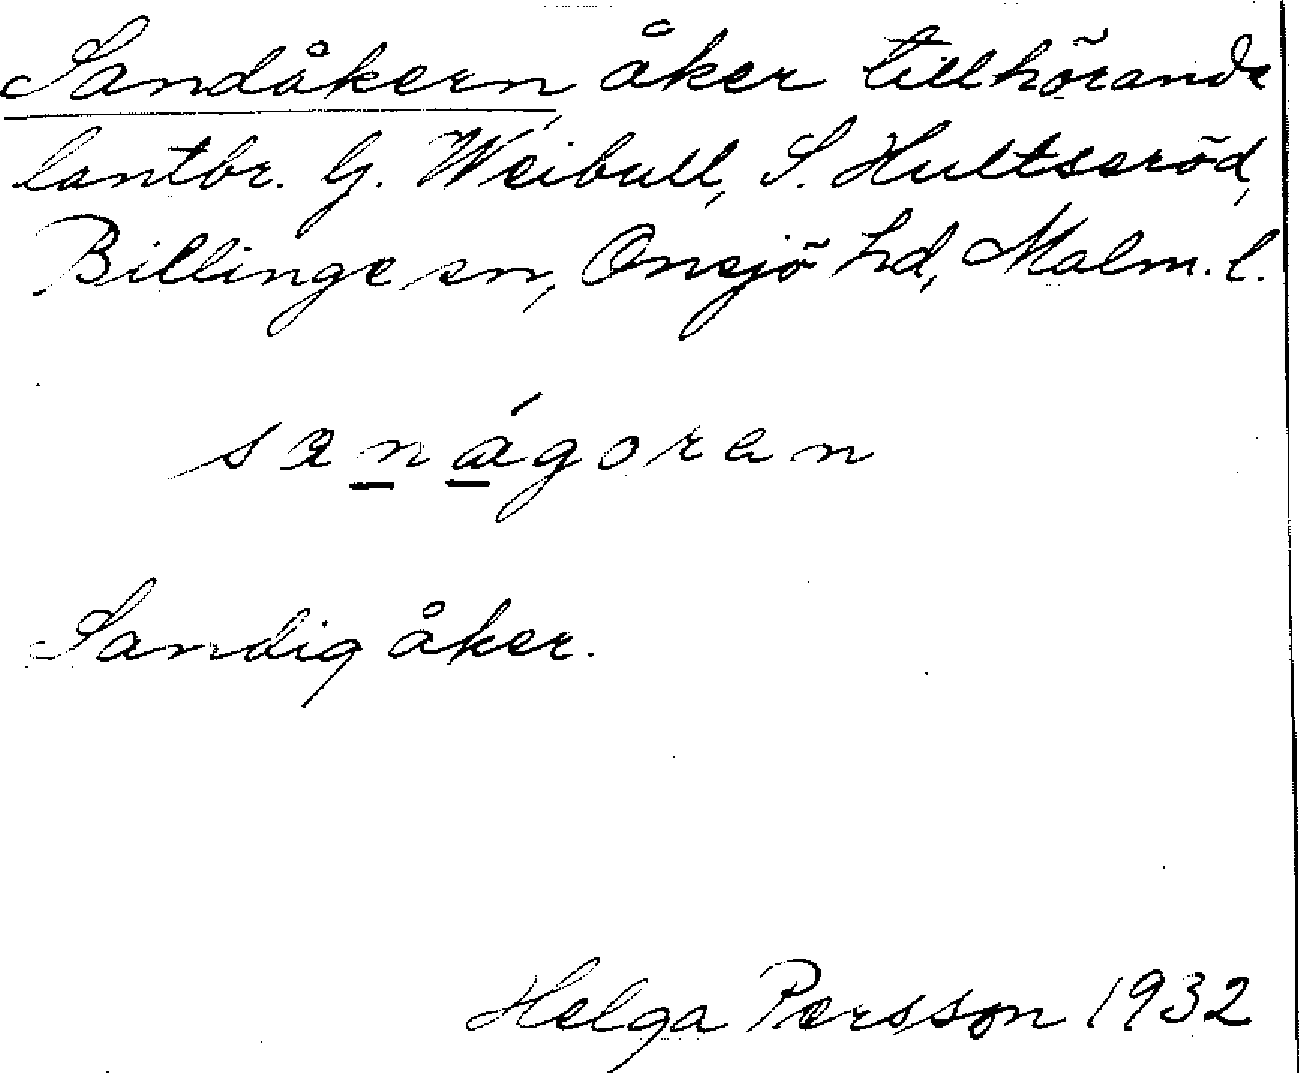 Sandåkern, åker tillhörande
lantbr. G. Weibull, S. Hultseröd,
Billinge sn, Onsjö hd, Malm. l.
sanágoren
Sandig åker.
Helga Persson 1932